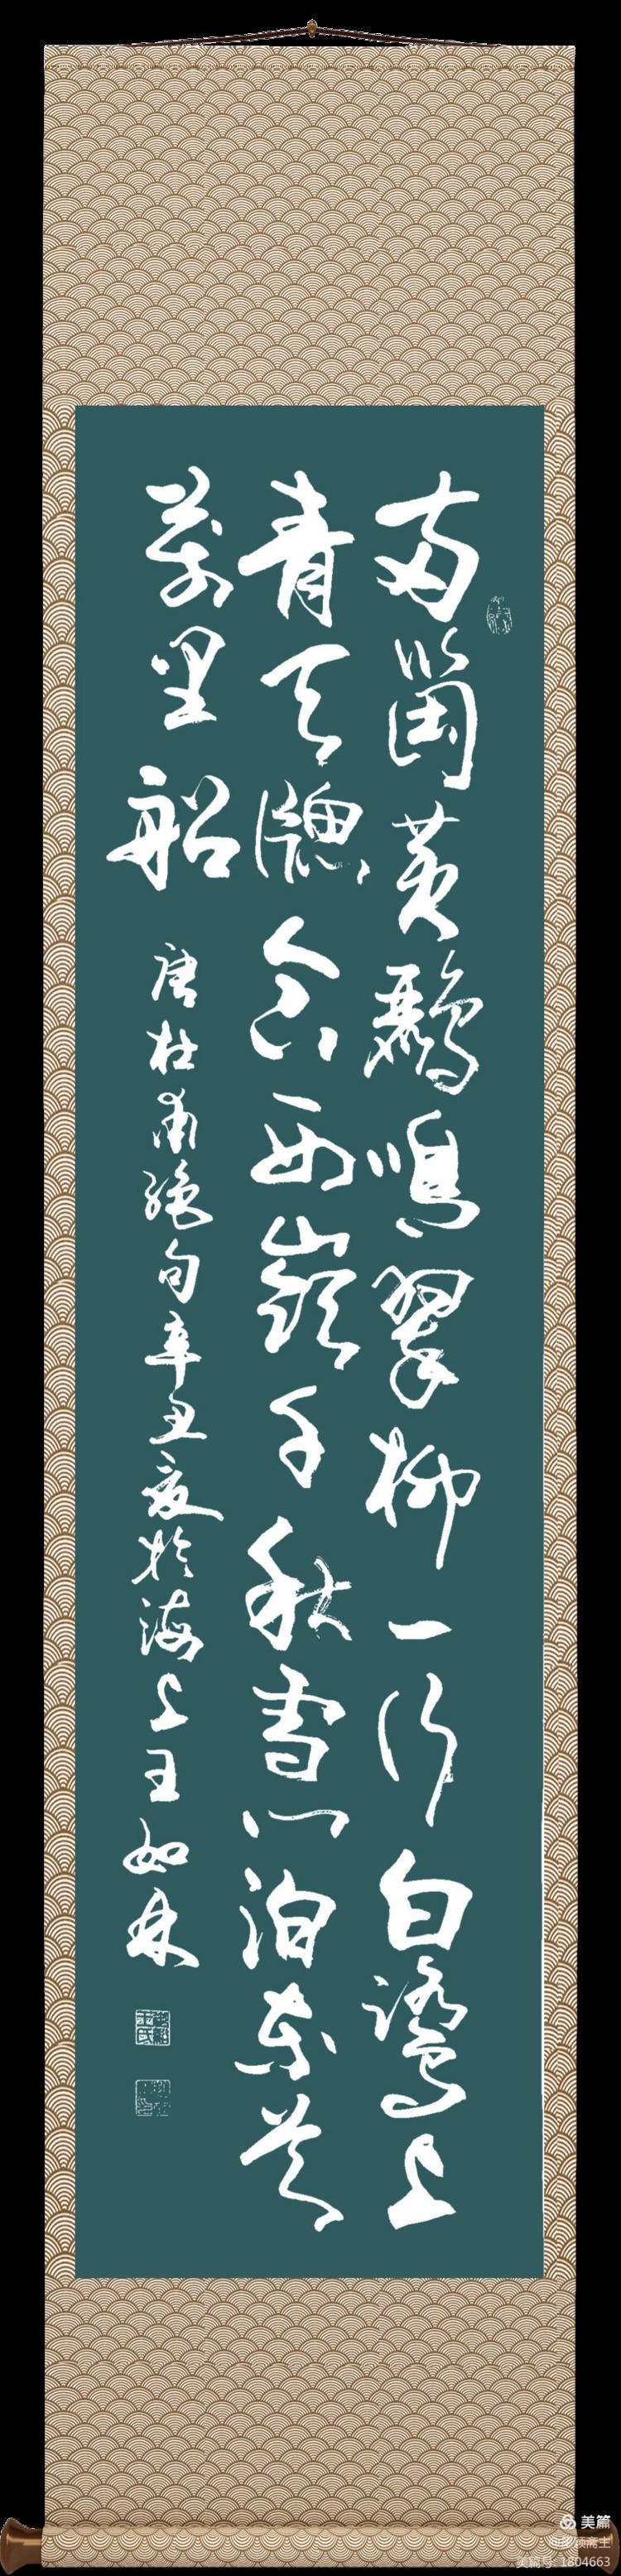 两箇黄鸝鳴翠柳一行白鷺上
青天牕含西嶺千秋雪门泊东吴
萬里船
唐杜甫绝句辛丑夏於海上王如林
美篇
美篇号: 1804663